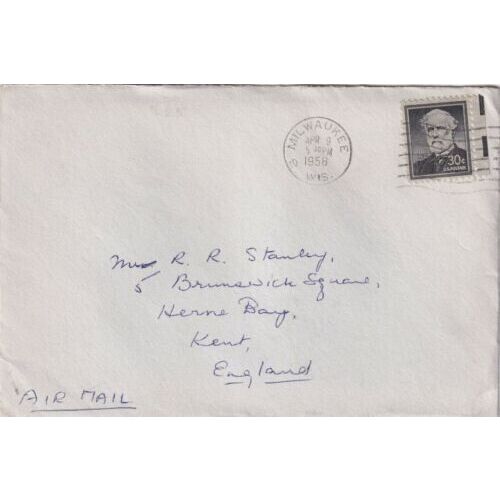 MILWAUKEE
2
APR 9
5 30 PM
1958
WIS.
30¢
U.S. POSTAGE
Mrs R. R. Stanley,
5 Brunswick Square,
Herne Bay,
Kent,
England
AIR MAIL